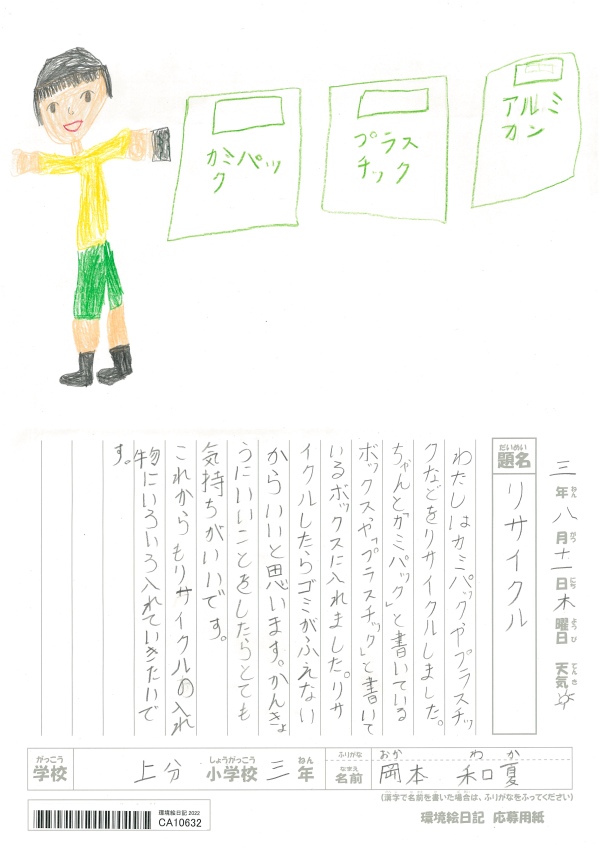 カミパッ
ク
プラス
チック
アルミ
カン
三年八月十一日木曜日 天気
ねん がつ にち ようび てんき
だいめい
題名 リサイクル
わたしはカミパックやプラスチッ
クなどをリサイクルしました。
ちゃんと「カミパック」と書いている
ボックスや「プラスチック」と書いて
いるボックスに入れました。リサ
イクルしたらゴミがふえない
からいいと思います。かんきょ
うにいいことをしたらとても
気持ちがいいです。
これからもリサイクルの入れ
物にいろいろ入れていきたいで
す。
がっこう しょうがっこう ねん
学校 上分 小学校 三年
ふりがな おか わか
なまえ
名前 岡本 和夏
(漢字で名前を書いた場合は、ふりがなをふってください)
環境絵日記 応募用紙
環境絵日記 2022
CA10632